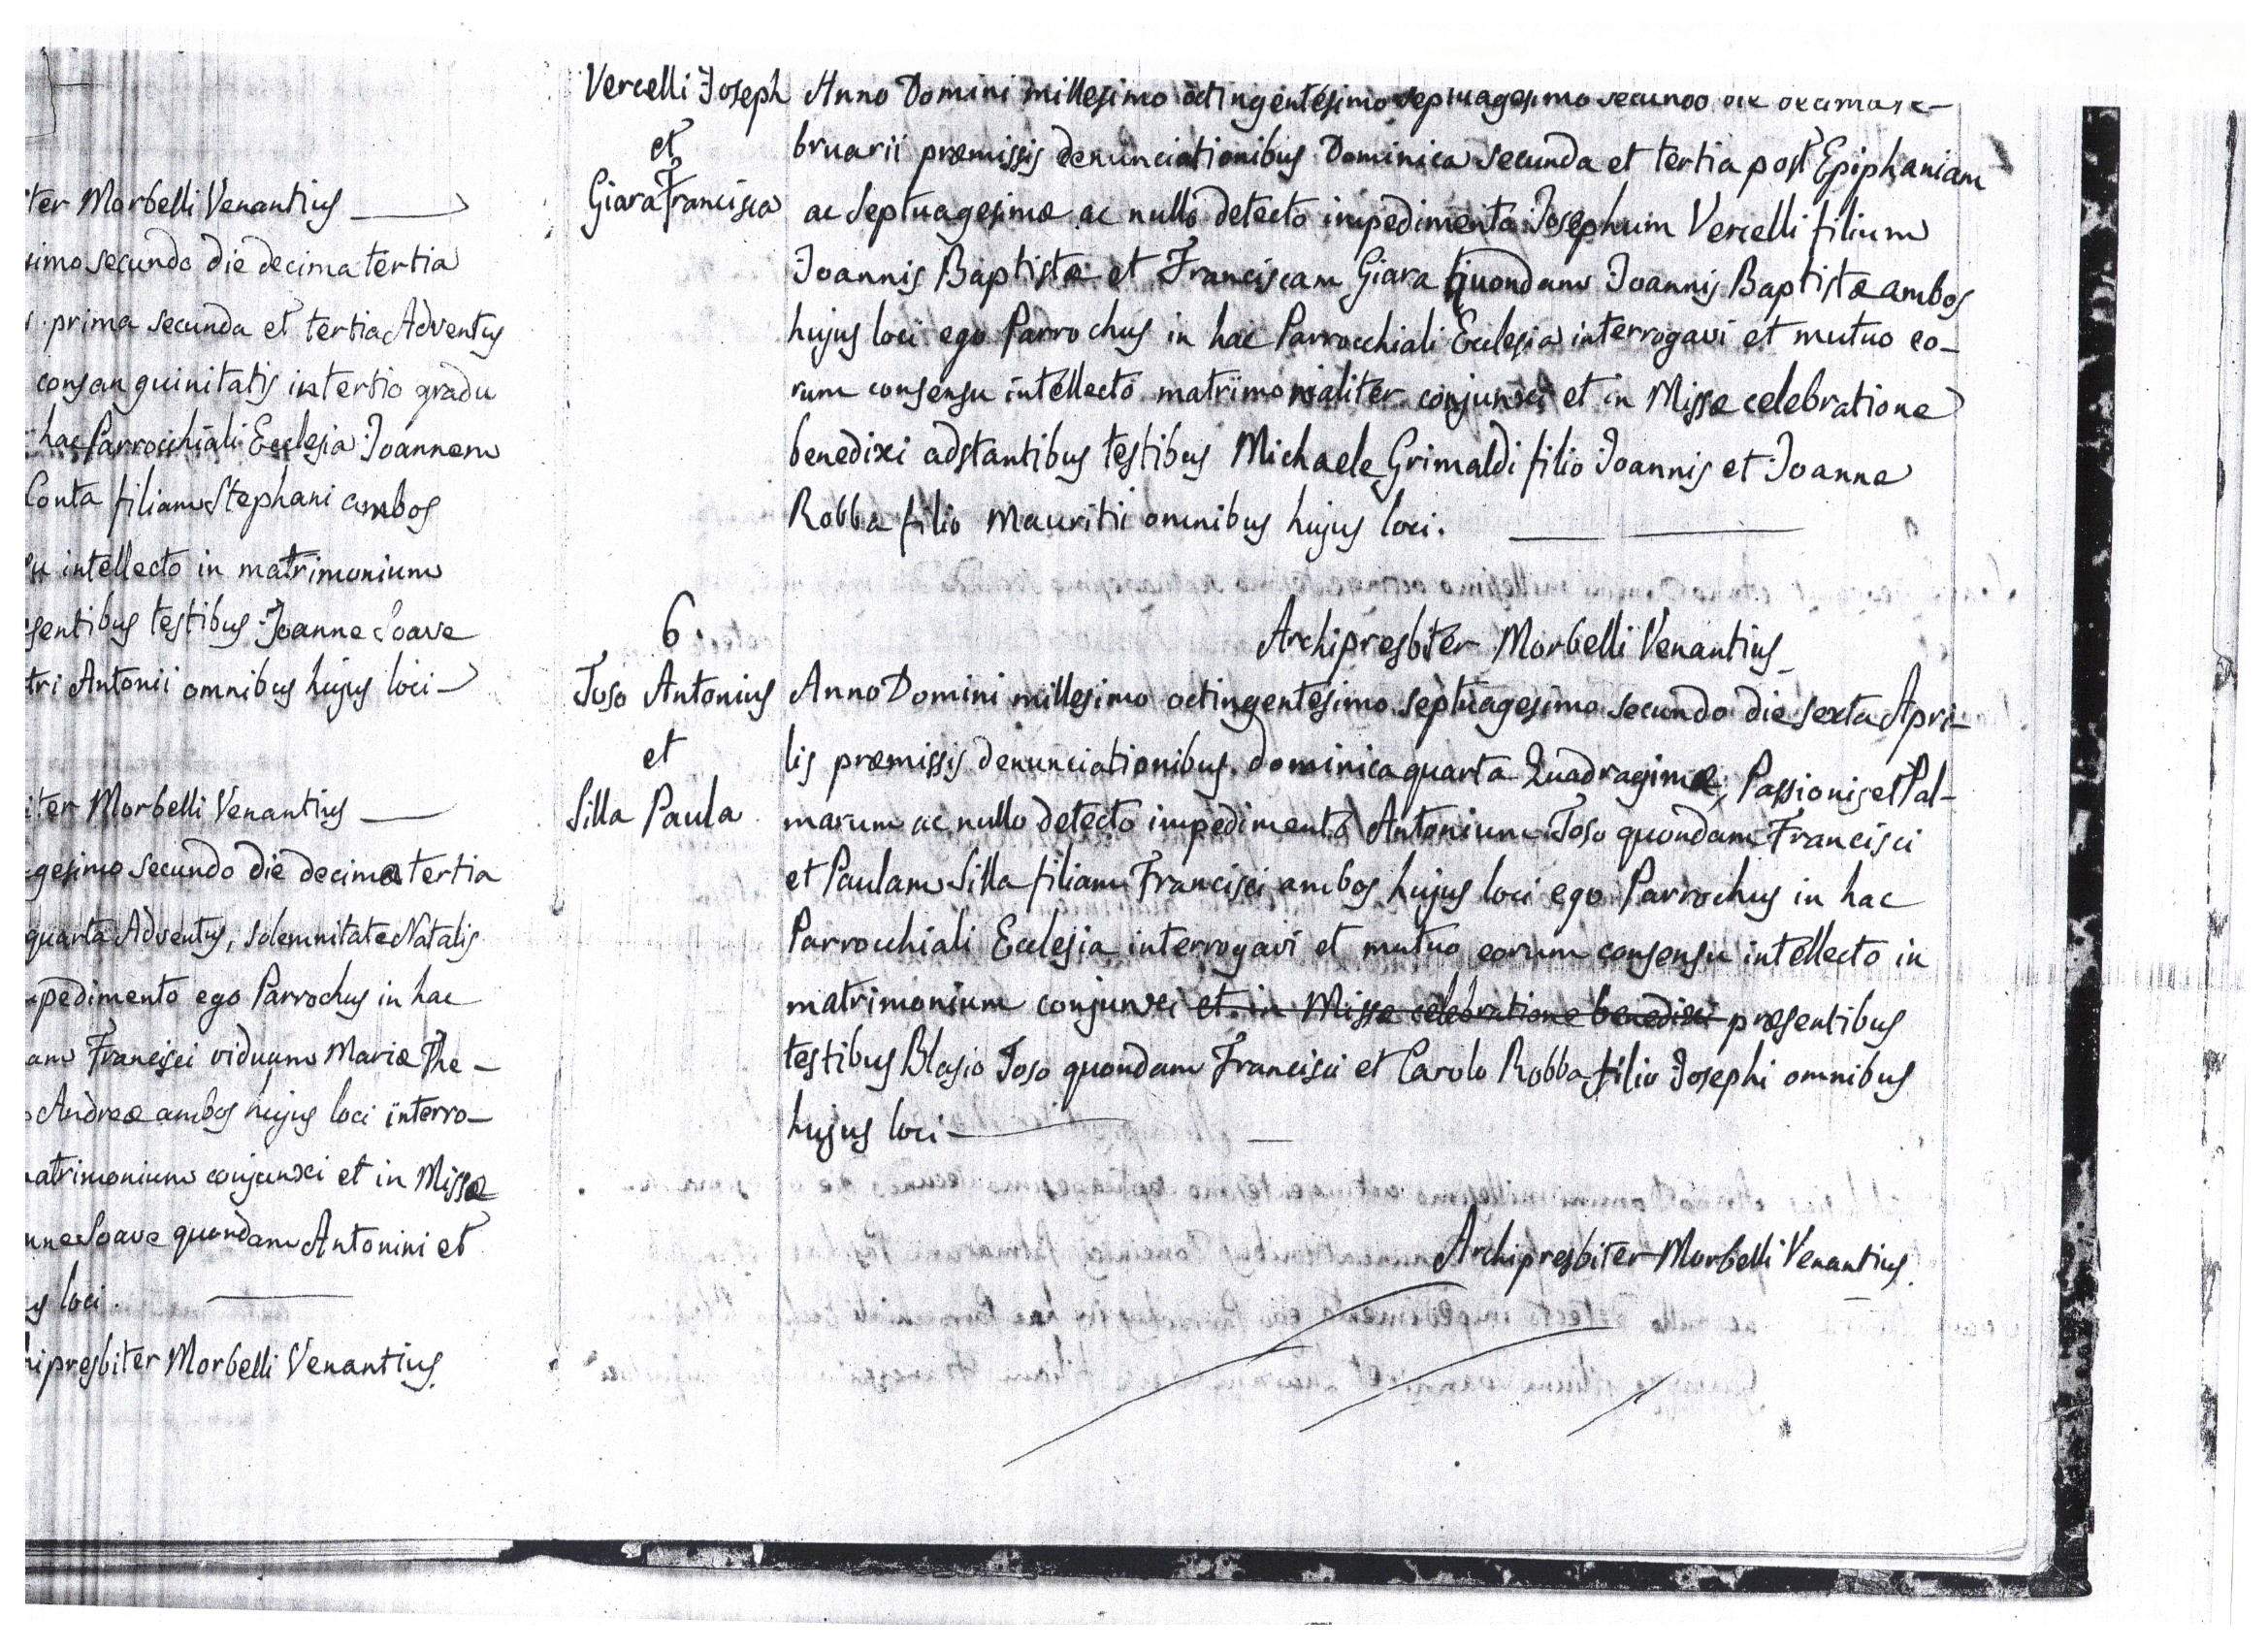 ter Morbelli Venantius
simo secundo die decima tertia
prima secunda et tertia Adventus
consanguinitatis in tertio gradu
hac Parrocchiali Ecclesia Joannem
Conta filiam Stephani ambos
su intellecto in matrimonium
sentibus testibus Joanne Soave
tri Antonii omnibus hujus loci
iter Morbelli Venantius
gesimo secundo die decima tertia
quarta Adventus, solemnitate Natalis
pedimento ego Parrochus in hac
am Francisci viduum Mariæ The-
Andreæ ambos hujus loci interro-
matrimonium conjunxi et in Missæ
nne Soave quondam Antonini et
s loci.
hipresbiter Morbelli Venantius.
Vercelli Joseph
et
Giara Francisca
Anno Domini millesimo octingentesimo septuagesimo secundo die decima Fe-
bruarii præmissis denunciationibus Dominica secunda et tertia post Epiphaniam
ac Septuagesimæ ac nullo detecto impedimento Josephum Vercelli filium
Joannis Baptistæ et Franciscam Giara quondam Joannis Baptistæ ambos
hujus loci ego Parrochus in hac Parrocchiali Ecclesia interrogavi et mutuo eo-
rum consensu intellecto matrimonialiter conjunxi et in Missæ celebratione
benedixi adstantibus testibus Michaele Grimaldi filio Joannis et Joanne
Robba filio Mauritii omnibus hujus loci.
Archipresbiter Morbelli Venantius
6.
Toso Antonius
et
Silla Paula
Anno Domini millesimo octingentesimo septuagesimo secundo die sexta Apri-
lis præmissis denunciationibus dominica quarta Quadragimæ, Passionis et Pal-
marum ac nullo detecto impedimento Antonium Toso quondam Francisci
et Paulam Silla filiam Francisci ambos hujus loci ego Parrochus in hac
Parrocchiali Ecclesia interrogavi et mutuo eorum consensu intellecto in
matrimonium conjunxi et in Missæ celebratione benedixi præsentibus
testibus Blasio Toso quondam Francisci et Carolo Robba filio Josephi omnibus
hujus loci
Archipresbiter Morbelli Venantius.